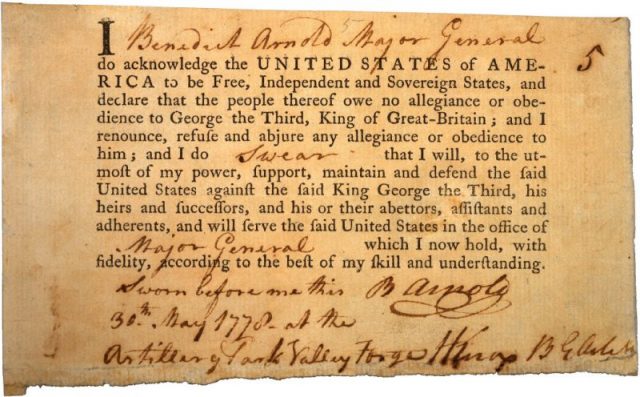 I Benedict Arnold Major General
do acknowledge the UNITED STATES of AME-
RICA to be Free, Independent and Sovereign States, and
declare that the people thereof owe no allegiance or obe-
dience to George the Third, King of Great-Britain; and I
renounce, refuſe and abjure any allegiance or obedience to
him; and I do swear that I will, to the ut-
moſt of my power, ſupport, maintain and defend the ſaid
United States againſt the ſaid King George the Third, his
heirs and ſucceſſors, and his or their abettors, aſſiſtants and
adherents, and will ſerve the ſaid United States in the office of
Major General which I now hold, with
fidelity, according to the beſt of my ſkill and underſtanding.
Sworn before me this B Arnold
30th May 1778 - at the
Artillery Park Valley Forge HKnox B G
5